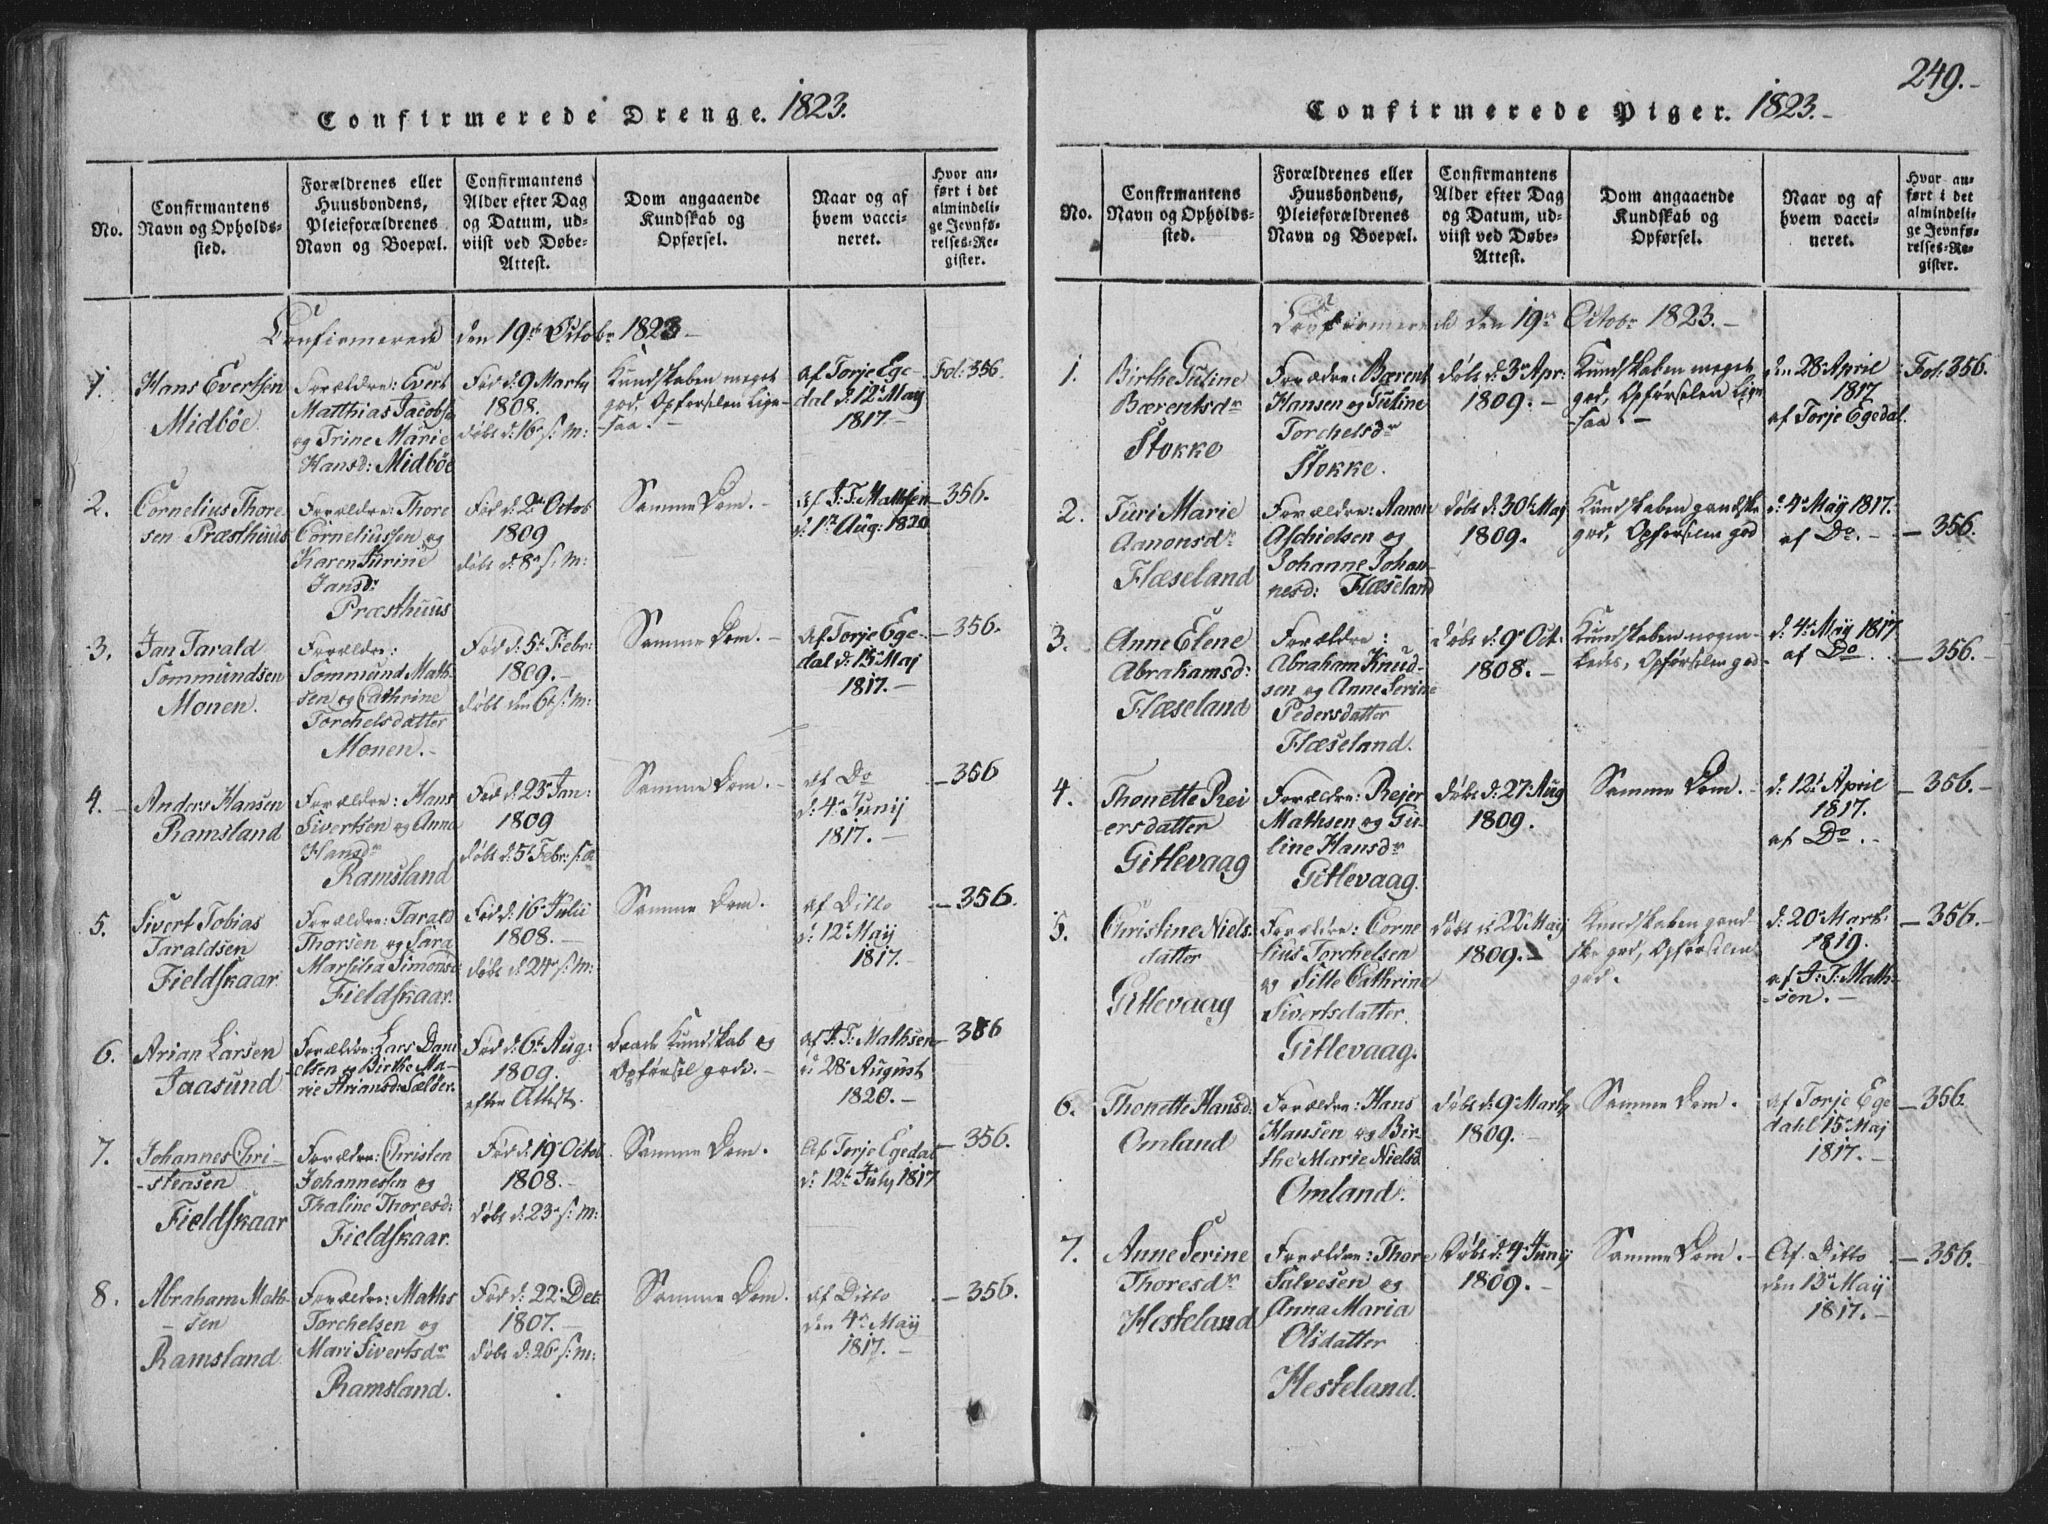 Confirmerede Drenge. 1823.
No.
Confirmantens
Navn og Opholds-
sted.
Forældrenes eller
Huusbondens,
Pleieforældrenes
Navn og Boepæl.
Confirmantens
Alder efter Dag
og Datum, ud-
viist ved Døbe-
Attest.
Dom angaaende
Kundskab og
Opførsel.
Naar og af
hvem vacci-
neret.
Hvor an-
ført i det
almindeli-
ge Jevnfø-
relses-Re-
gister.
Confirmerede den 19de Octobr 1823
1.
Hans Evertsen
Midbøe
Forældre: Evert
Matthias Jacobse
og Trine Marie
Hansd: Midbøe
Fød d: 9 Marty
1808.
døbt d: 16e s: m:
Kundskaben meget
god, Opførselen lige-
saa.
af Torje Ege-
dal d: 12e May
1817.
Fol: 356.
2.
Cornelius Thore
sen Præsthuus
Forældre: Thore
Corneliussen og
Karen Turine
Jansdr
Præsthuus
Fød d: 2de Octob
1809
døbt d: 8e s: m:
Samme Dom.
af J. T. Mathsen
d: 1te Aug: 1820
356.
3.
Jan Tarald
Tommundsen
Monen.
Forældre:
Tommund Math-
sen og Cathrine
Torchelsdatter
Monen.
Fød d: 5te Febr:
1809.
døbt den 6te s: m:
Samme Dom.
af Torje Ege-
dal d: 15e Maj
1817.
356.
4.
Anders Hansen
Ramsland
Forældre: Hans
Sivertsen og Anna
Hansdr
Ramsland
Fød d: 23e Jan:
1809
døbt d: 5te Febr: s: a
Samme Dom.
af Do
d: 4e Junij
1817.
356
5.
Sivert Tobias
Taraldsen
Fieldskaar.
Forældre: Tarald
Thorsen og Sara
Marsilia Simonsd
Fieldskaar.
Fød d: 16e Julii
1808.
døbt d: 24e s: m:
Samme Dom.
af Ditto
d: 12e Maij
1817.
356.
6.
Arian Larsen
Jaasund
Forældre: Lars Dani
elsen og Birthe Ma-
rie Ariansd: Sælør.
Fød d: 6te Aug:
1809.
efter Attest.
Kundskab og
Opførsel gode.
af J. T: Mathsen
d: 28e August
1820.
356
7.
Johannes Chri
-stensen
Fieldskaar
Forældre: Christen
Johannessen og
Thaline Thoresd:
Fieldskaar.
Fød d: 19 Octob
1808.
døbt d: 23e s: m:
Samme Dom.
Af Torje Egedal
d: 12te July 1817
356.
8.
Abraham Math
-sen
Ramsland
Forældre: Maths
Torchelsen og
Mari Sivertsdr
Ramsland.
Fød d: 22: Dec:
1807.
døbt d: 26e s: m:
Samme Dom.
af Ditto
den 4e Maij
1817.
356.
249.
Confirmerede Piger. 1823.
No.
Confirmantens
Navn og Opholds-
sted.
Forældrenes eller
Huusbondens,
Pleieforældrenes
Navn og Boepæl.
Confirmantens
Alder efter Dag
og Datum, ud-
viist ved Døbe-
Attest.
Dom angaaende
Kundskab og
Opførsel.
Naar og af
hvem vacci-
neret.
Hvor an-
ført i det
almindeli-
ge Jevnfø-
relses-Re-
gister.
Confirmerede den 19de Octobr 1823.
1.
Birthe Tutine
Bærentsdr
Stokke
Forældre: Bærent
Hansen og Tutine
Torchelsdr
Stokke.
døbt d: 3e Apr:
1809.
Kundskaben meget
god, Opførselen lige
saa
den 28e April
1817
af Torje Egedal.
Fol: 356.
2.
Turi Marie
Aanonsdr
Flæseland
Forældre: Aanon
Aschielsen og
Johanne Johan-
nesd: Flæseland
døbt d: 30te Maj
1809.
Kundskaben gandske
god, Opførselen god
d: 4e Maij 1817.
af Do.
356.
3.
Anne Elene
Abrahamsd:
Flæseland
Forældre:
Abraham Knud-
sen og Anne Serine
Pedersdatter
Flæseland.
døbt d: 9e Oct:
1808.
Kundskaben nogen-
ledes, Opførselen god
d: 4e Maij 1817
af Do.
356.
4.
Thonette Rei
ersdatter
Gitlevaag
Forældre: Rejer
Mathsen og Gu-
line Hansdr
Gitlevaag.
døbt d: 27: Aug
1809.
Samme Dom.
d: 12e April
1817.
af Do.
356.
5.
Christine Niels-
datter
Gitlevaag
Forældre: Corne
lius Torchelsen
og Sille Cathrine
Sivertsdatter.
Gitlevaag.
døbt d: 22e Maij
1809.
Kundskaben gand
ske god, Opførselen
god.
d: 20e Mart:
1819.
af J: T: Math-
-sen.
356.
6.
Thonette Hansd:
Omland
Forældre: Hans
Hansen og Bir-
the Marie Nielsd
Omland.
døbt d: 9e Marty
1809.
Samme Dom.
af Torje Ege
dahl 15e Maj
1817.
356.
7.
Anne Serine
Thoresdr
Hesteland
Forældre: Thore
Salvesen og
Anna Maria
Olsdatter
Hesteland.
døbt d: 4 Junij
1809.
Samme Dom.
Af Ditto
den 13e Maij
1817.
356.